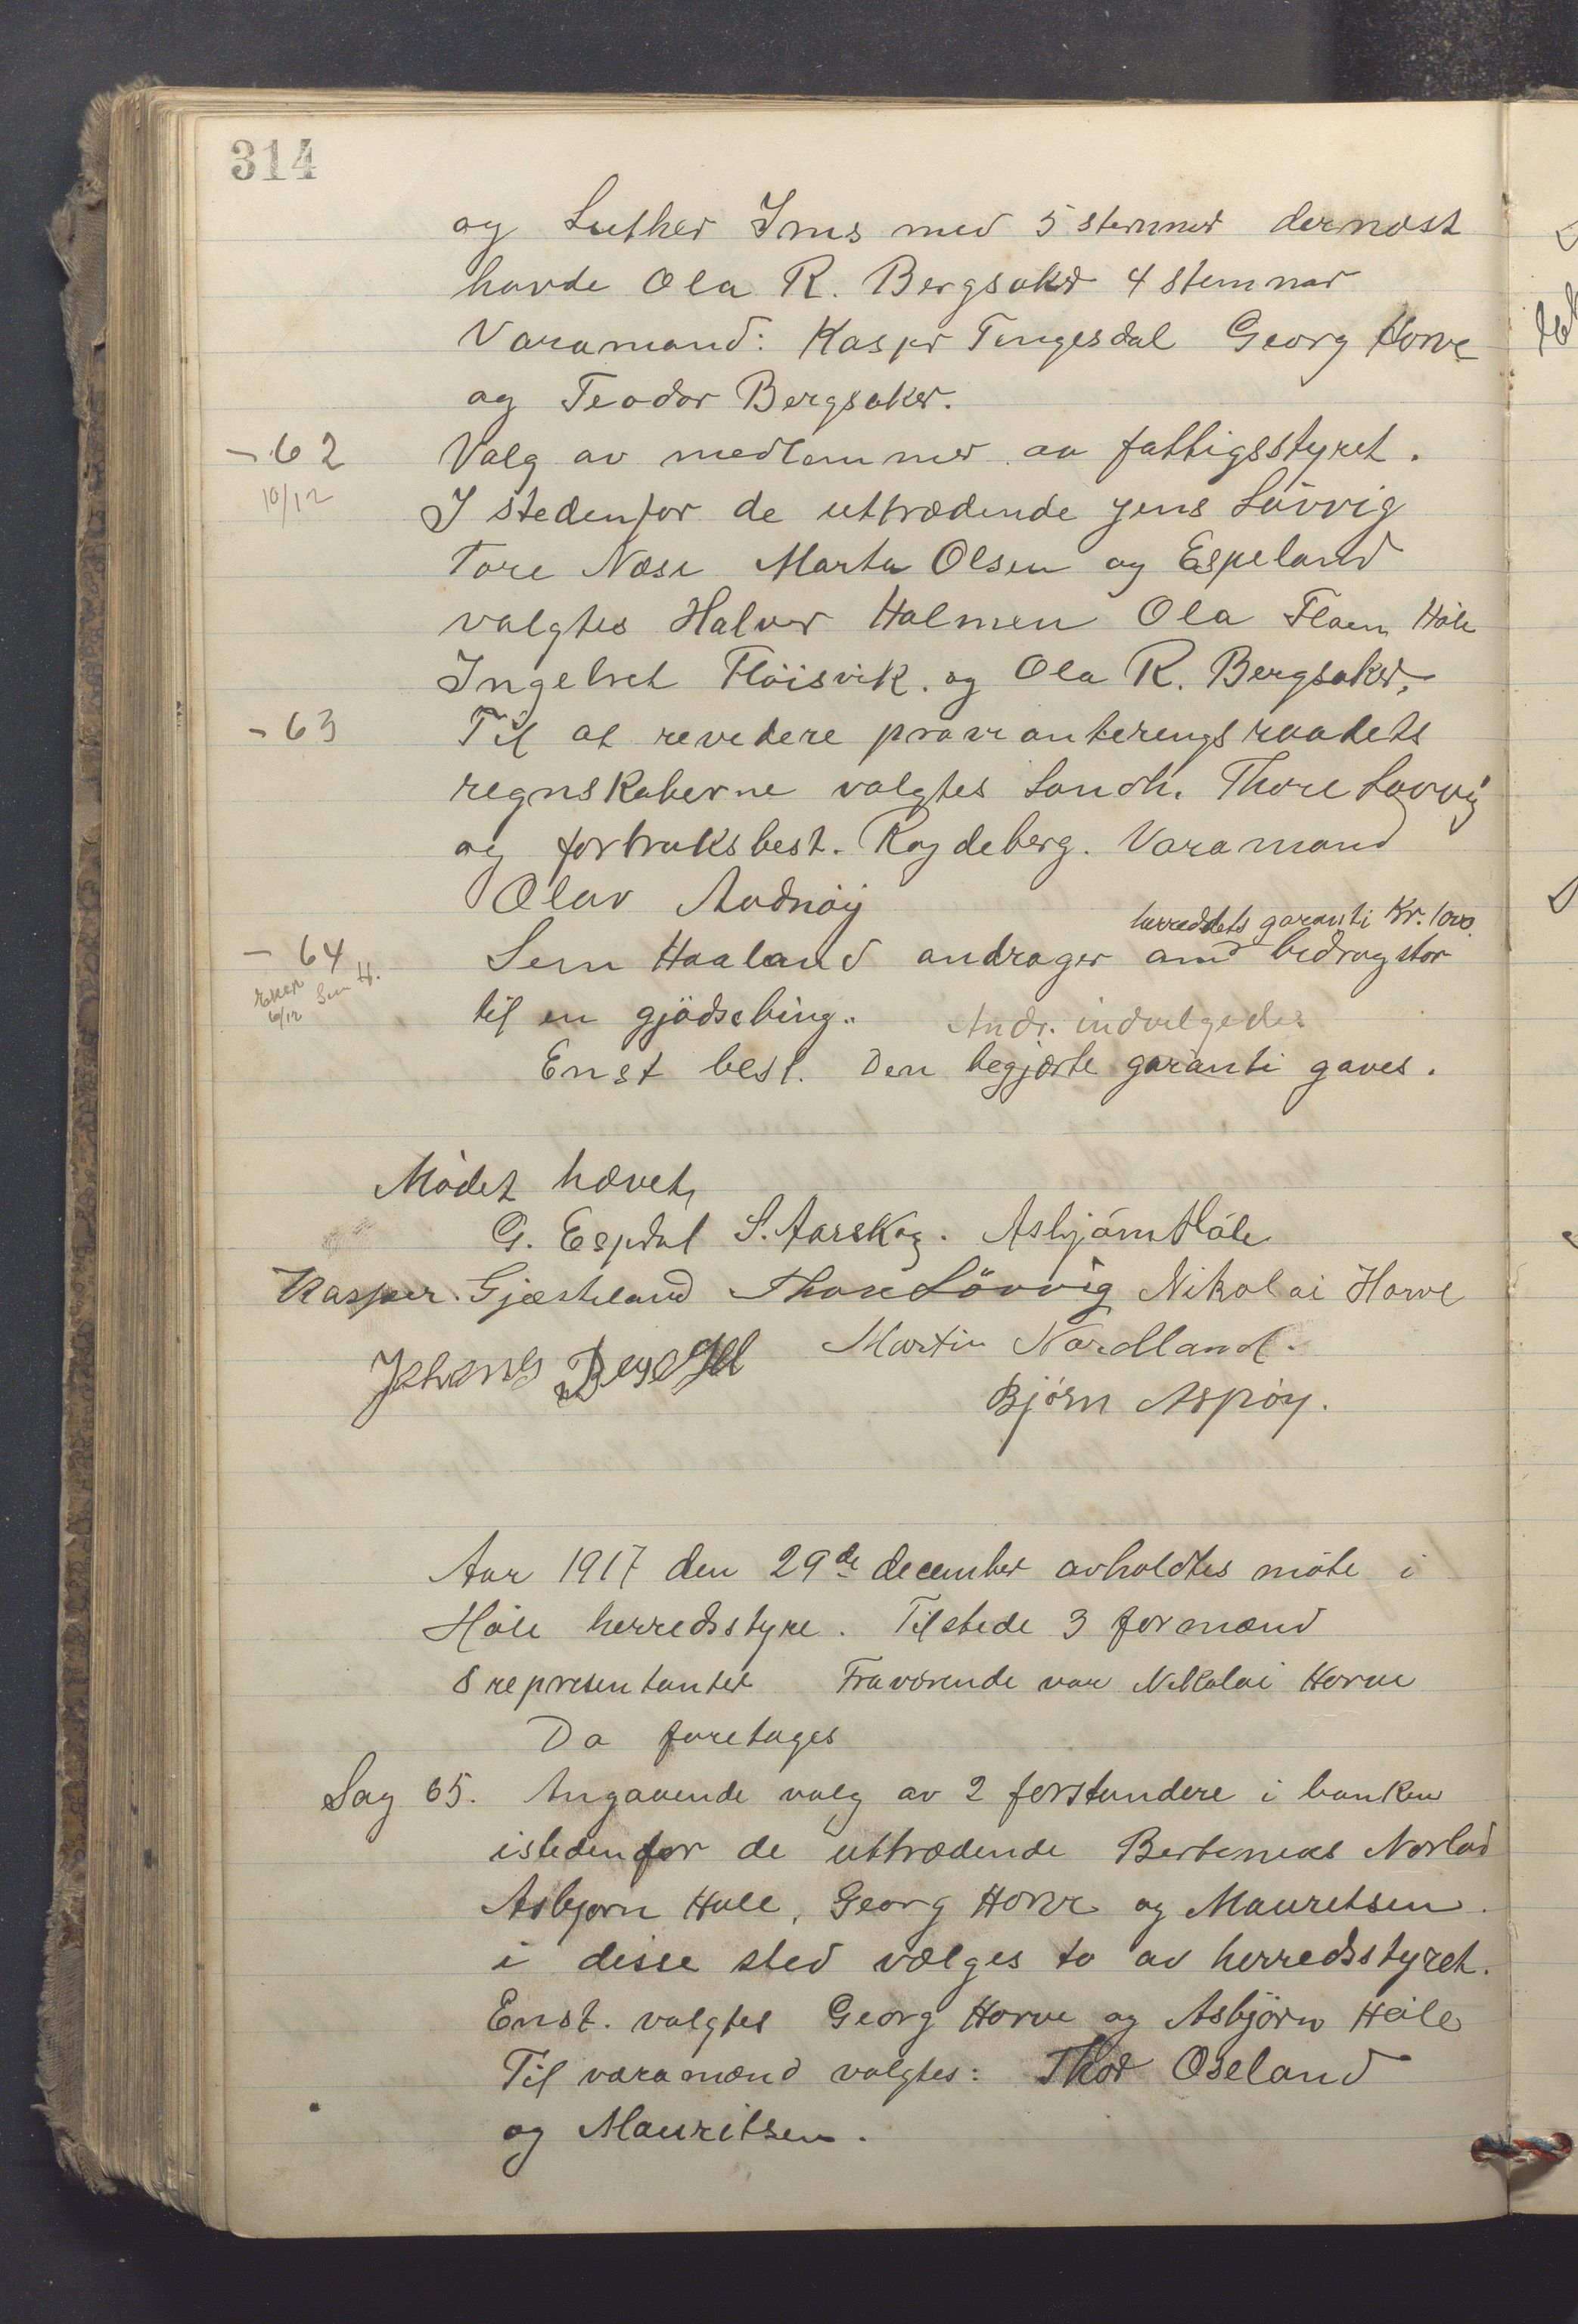 314
og Luther Ims med 5 stemmer dernæst
havde Ola R. Bergsaker 4 stemmer
Varamænd: Kasper Tengesdal Georg Horve
og Teodor Bergsaker.
- 62 Valg av medlemmer av fattigsstyret.
10/12
I stedenfor de uttrædende Jens Løvvig
Tore Næse Marta Olsen og Espeland
valgtes Halvor Halmen Ola Floen Høle
Ingebret Fløisvik. og Ola R. Bergsaker.
- 63 Til at revidere provianteringsraadets
regnskaberne valgtes Landh. Thore Løvvig
og forbruksbest. Røydeberg. Varamand
Olav Audnøy
herredets garanti Kr. 1000.
- 64 Sem Haaland andrager om bidrag stor
Eksp Sem H.
6/12
til en gjødsebing. Andr. indvilgedes
Enst best. Den begjærte garanti gaves.
Mødet hævet,
G. Espedal S. Aarskog. Asbjørn Høle
Kasper. Gjesteland Thore Løvvig Nikolai Horve
Martin Nordland.
Bjørn Aspøy.
Aar 1917 den 29de december avholdtes møte i
Høle herredsstyre. Tilstede 3 formænd
8 representanter Fraværende var Nikolai Horve
Da foretages
Sag 65. Angaaende valg av 2 forstandere i banken
istedenfor de uttrædende Bertineus Norland
Asbjørn Høle, Georg Horve og Mauritsen.
i disse sted vælges to av herredsstyret.
Enst. valgtes Georg Horve og Asbjørn Høile
Til varamænd valgtes: Thor Oseland
og Mauritsen.